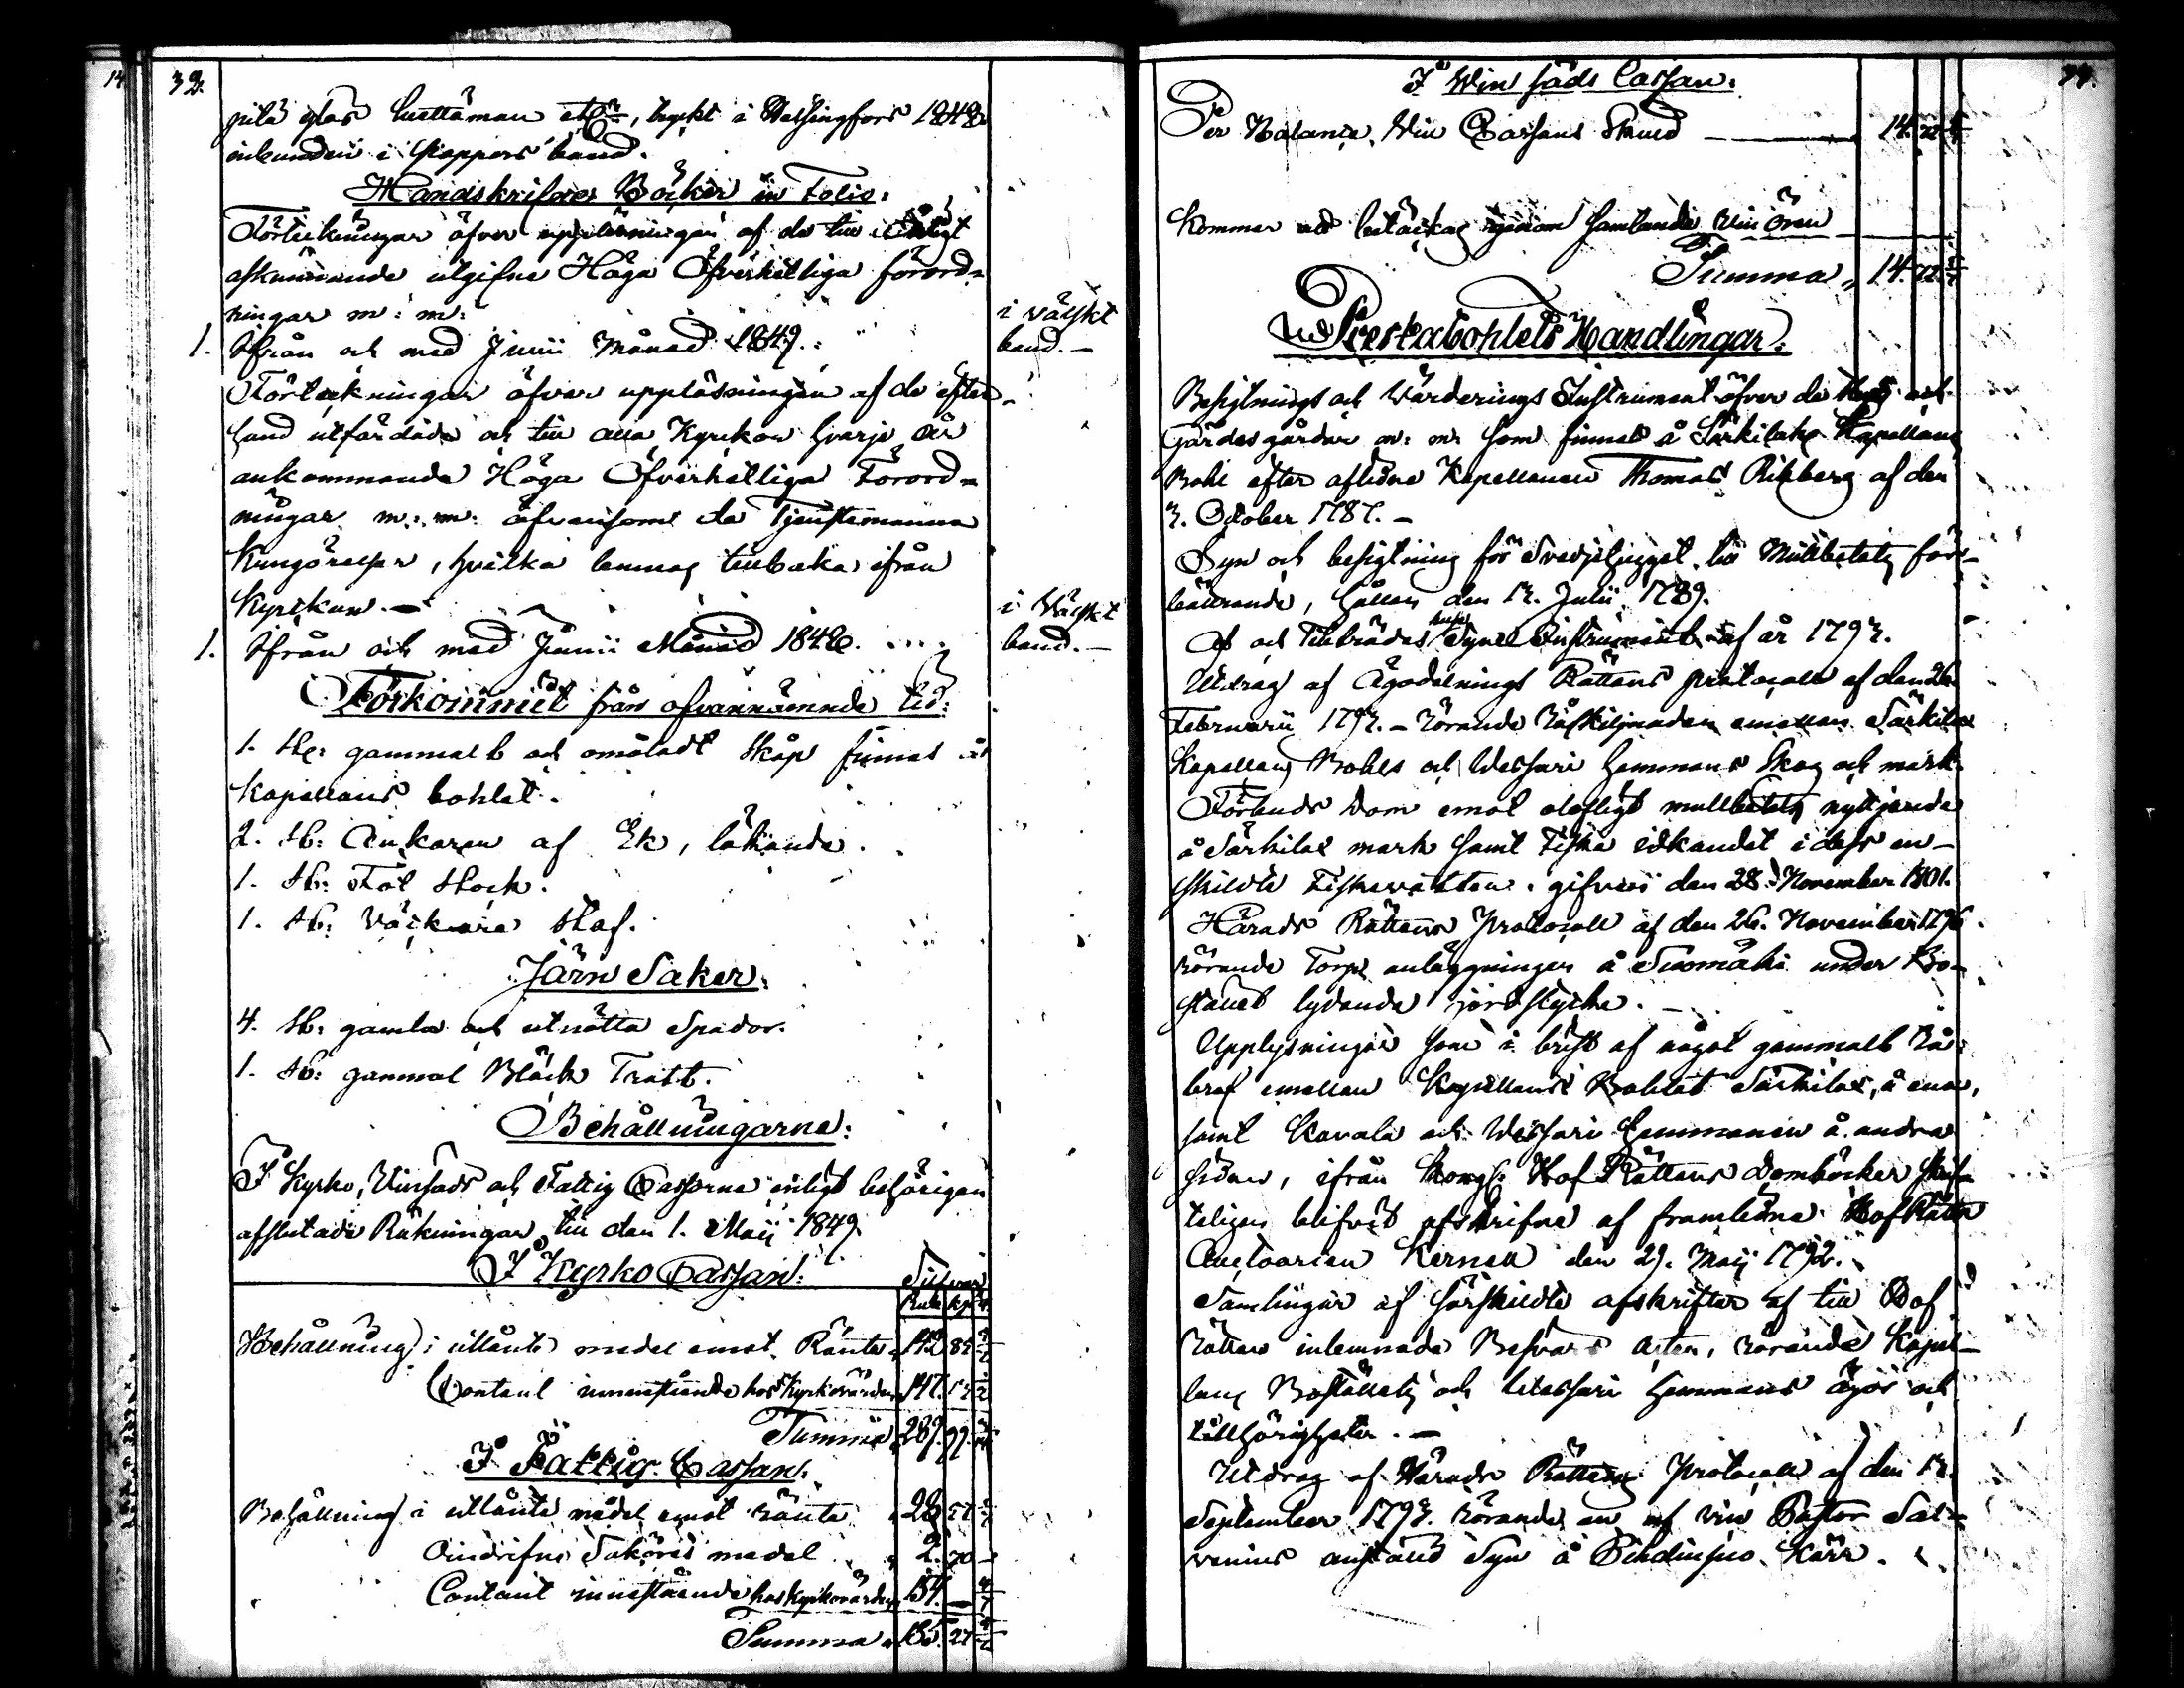 32.
pitä ylös luettaman etc, tryckt i Helsingfors 1848
inbunden i Pappers band.
Handskrifne Böcker in Folio.
Förteckningar öfver uppläsningen af de till
afkunnande utgifne Höga Öfverhetliga förord-
ningar m: m:
1. Ifrån och med Junii Månad 1849. i välskt band.
Förteckningar öfver uppläsningen af de efter
hand utfärdade och till alla Kyrkor hvarje år
ankommande Höga Öfverhetliga Förord-
ningar m: m: äfvensom de Tjenstemanna
Kungörelser, hvilka lemnas tillbaka ifrån
Kyrkan. —
1. Ifrån och med Junii Månad 1848. i Välskt band. —
Förkommit från ofvannämnde tid:
1. st: gammalt och omåladt Skåp finnes i
Kapellans bohlet.
2. st: Ankaren af Ek, läkande.
1. st: Fot stock.
1. st: Väckare staf.
Järn Saker:
4. st: gamla och utnötta Spador.
1. st: gammal Bläck Tratt.
Behållningarne:
I Kyrko, Vinsäds och Fattig Cassorne enligt behörigen
afslutade Räkningar till den 1. Maji 1849
I Kyrko Cassan: Silfver
Rub. kp.
Behållning i utlånte medel emot Ränta 142. 85
Contant innestående hos Kyrkovärden 147. 13
Summa 289. 99.
I Fattig Cassan.
Behållning i utlånte medel emot ränta 28 57
Oindrifne Saköres medel 2. 70 —
Contant innestående hos Kyrkovärden 154. —
Summa 185. 27
I Win säds Cassan:
Per Balance, Win Cassans Skuld — 14. 22
Kommer att betäckas genom samlande vin ören
Summa 14. 22.
Prestabohlets Handlingar.
Besigtnings och Värderings Instrument öfver de Hus och
Gärdesgårdar m: m: som finnes å Särkilaks Kapellans
Bohl efter aflidne Kapellanen Thomas Rihberg af den
3. October 1787. —
Syn och besigtning för Svedjehygget till Mullbetets för-
bättrande, hållen den 13. Julii 1789.
Af och Tillträdes huse Syne Instrument af år 1793.
Utdrag af Ägodelnings Rättens protocoll af den 26
Februarii 1793. — rörande Råskilnaden emellan Särkilax
Kapellans Bohls och Wessari hemmans Skog och mark.
Förbuds Dom emot olofligt mullbetets nyttjande
å Särkilax mark samt Fiske idkandet i dess en-
skildte Fiskevatten, gifven den 28. November 1801.
Härads Rättens Protocoll af den 26. November 1796
rörande Torps anläggningen å Suomäki under Bo-
stället lydande jordstycke. —
Upplysningar som i brist af något gammalt Rå-
bref emellan Kapellans Bohlet Särkilax, å ena,
samt Kavala och Wessari Hemmanen å andra
sidan, ifrån Kongl: Hof Rättens Domböcker skrif-
teligen blifvit afskrifne af framledne Hof Rätts
Auctuarien Kernell den 29. Maij 1792.
Samlingar af särskildte afskrifter af till Hof
Rätten inlemnade Besvärs Acter, rörande Kapel-
lans Boställets och Wessari hemmans ägor och
tillhörigheter. —
Utdrag af Härads Rättens Protocoll af den 13.
September 1793. rörande en af vice Pastor Sal-
venius anstäld Syn å Kärr.